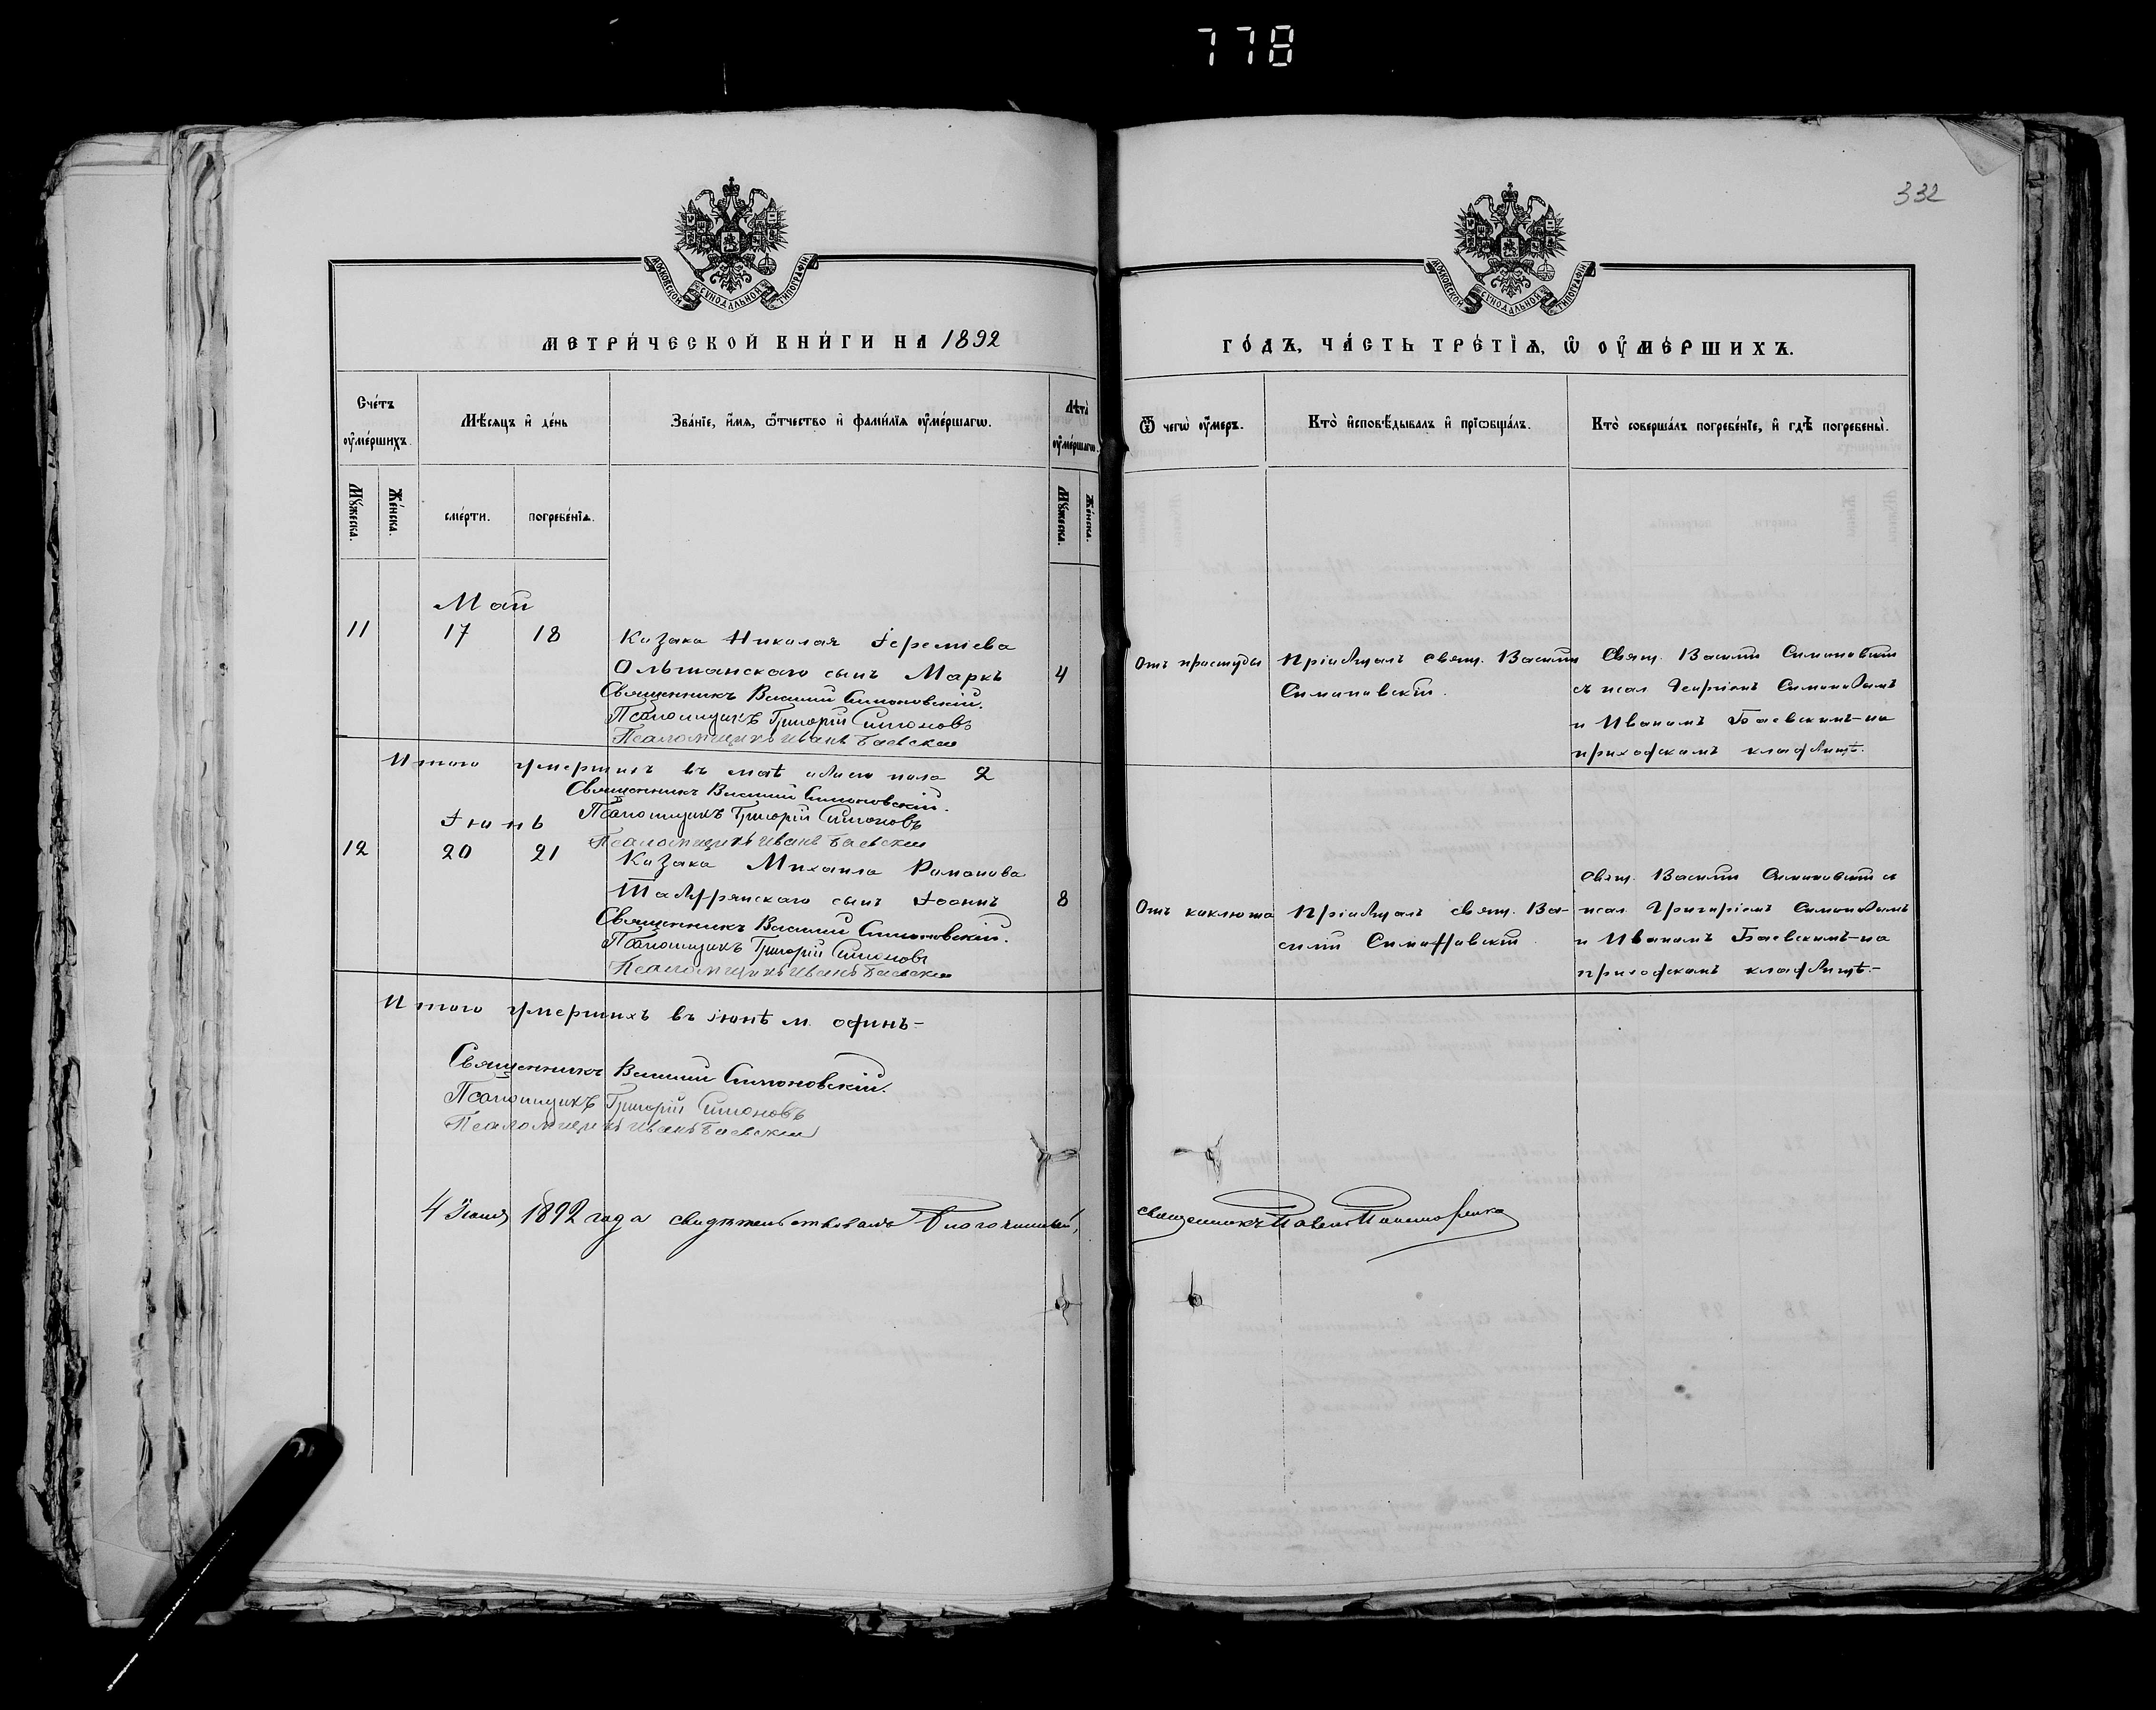 778
332
МОСКОВСКОЙ СѴНОДАЛЬНОЙ ТИПОГРАФІИ
МОСКОВСКОЙ СѴНОДАЛЬНОЙ ТИПОГРАФІИ
МЕТРИ́ЧЕСКОЙ КНИ́ГИ НА 1892
ГО́ДЪ, ЧА́СТЬ ТРЕ́ТІѦ, Ѡ҆ ОУ҆МЕ́РШИХЪ.
Сче́тъ оу҆ме́ршихъ.
Мѣ́сѧцъ и҆ де́нь
Зва́нїе, и҆́мѧ, ѻ҆́тчество и҆ фами́лїѧ оу҆ме́ршагѡ.
Лѣ́та оу҆ме́ршагѡ.
Ѿ чегѡ̀ оу҆́меръ.
Кто̀ и҆сповѣ́дывалъ и҆ прїѡбща́лъ.
Кто̀ соверша́лъ погребе́нїе, и҆ гдѣ̀ погребены̀.
Мꙋ́жеска.
Же́нска.
сме́рти.
погребе́нїѧ.
Мꙋ́жеска.
Же́нска.
Май
11 17 18 Казака Николая Іеремiева
Ольшанскаго сынъ Маркъ 4
Священникъ Василій Симоновскій.
Псаломщикъ Григорій Симоновъ
Псаломщикъ Иванъ Баевскій
Отъ простуды
Пріобщалъ свящ. Василій
Симоновскій.
Свящ. Василій Симоновскій
съ псал. Симоновымъ
и Иваномъ Баевскимъ–на
приходскомъ кладбищѣ.
Итого умершихъ въ маѣ обоего пола 2
Священникъ Василій Симоновскій.
Псаломщикъ Григорій Симоновъ
Псаломщикъ Иванъ Баевскій
Іюнь
12 20 21 Казака Михаила Романова
сынъ Іоаннъ 8
Священникъ Василій Симоновскій.
Псаломщикъ Григорій Симоновъ
Псаломщикъ Иванъ Баевскій
Отъ коклюша
Пріобщалъ свящ. Ва-
силій Симоновскій
Свящ. Василій Симоновскій съ
псал. Григоріемъ Симоновымъ
и Иваномъ Баевскимъ–на
приходскомъ кладбищѣ.–
Итого умершихъ въ іюнѣ м. одинъ–
Священникъ Василій Симоновскій.
Псаломщикъ Григорій Симоновъ
Псаломщикъ Иванъ Баевскій
4 1892 года свидѣтельствовалъ Благочинный,
священникъ Павелъ